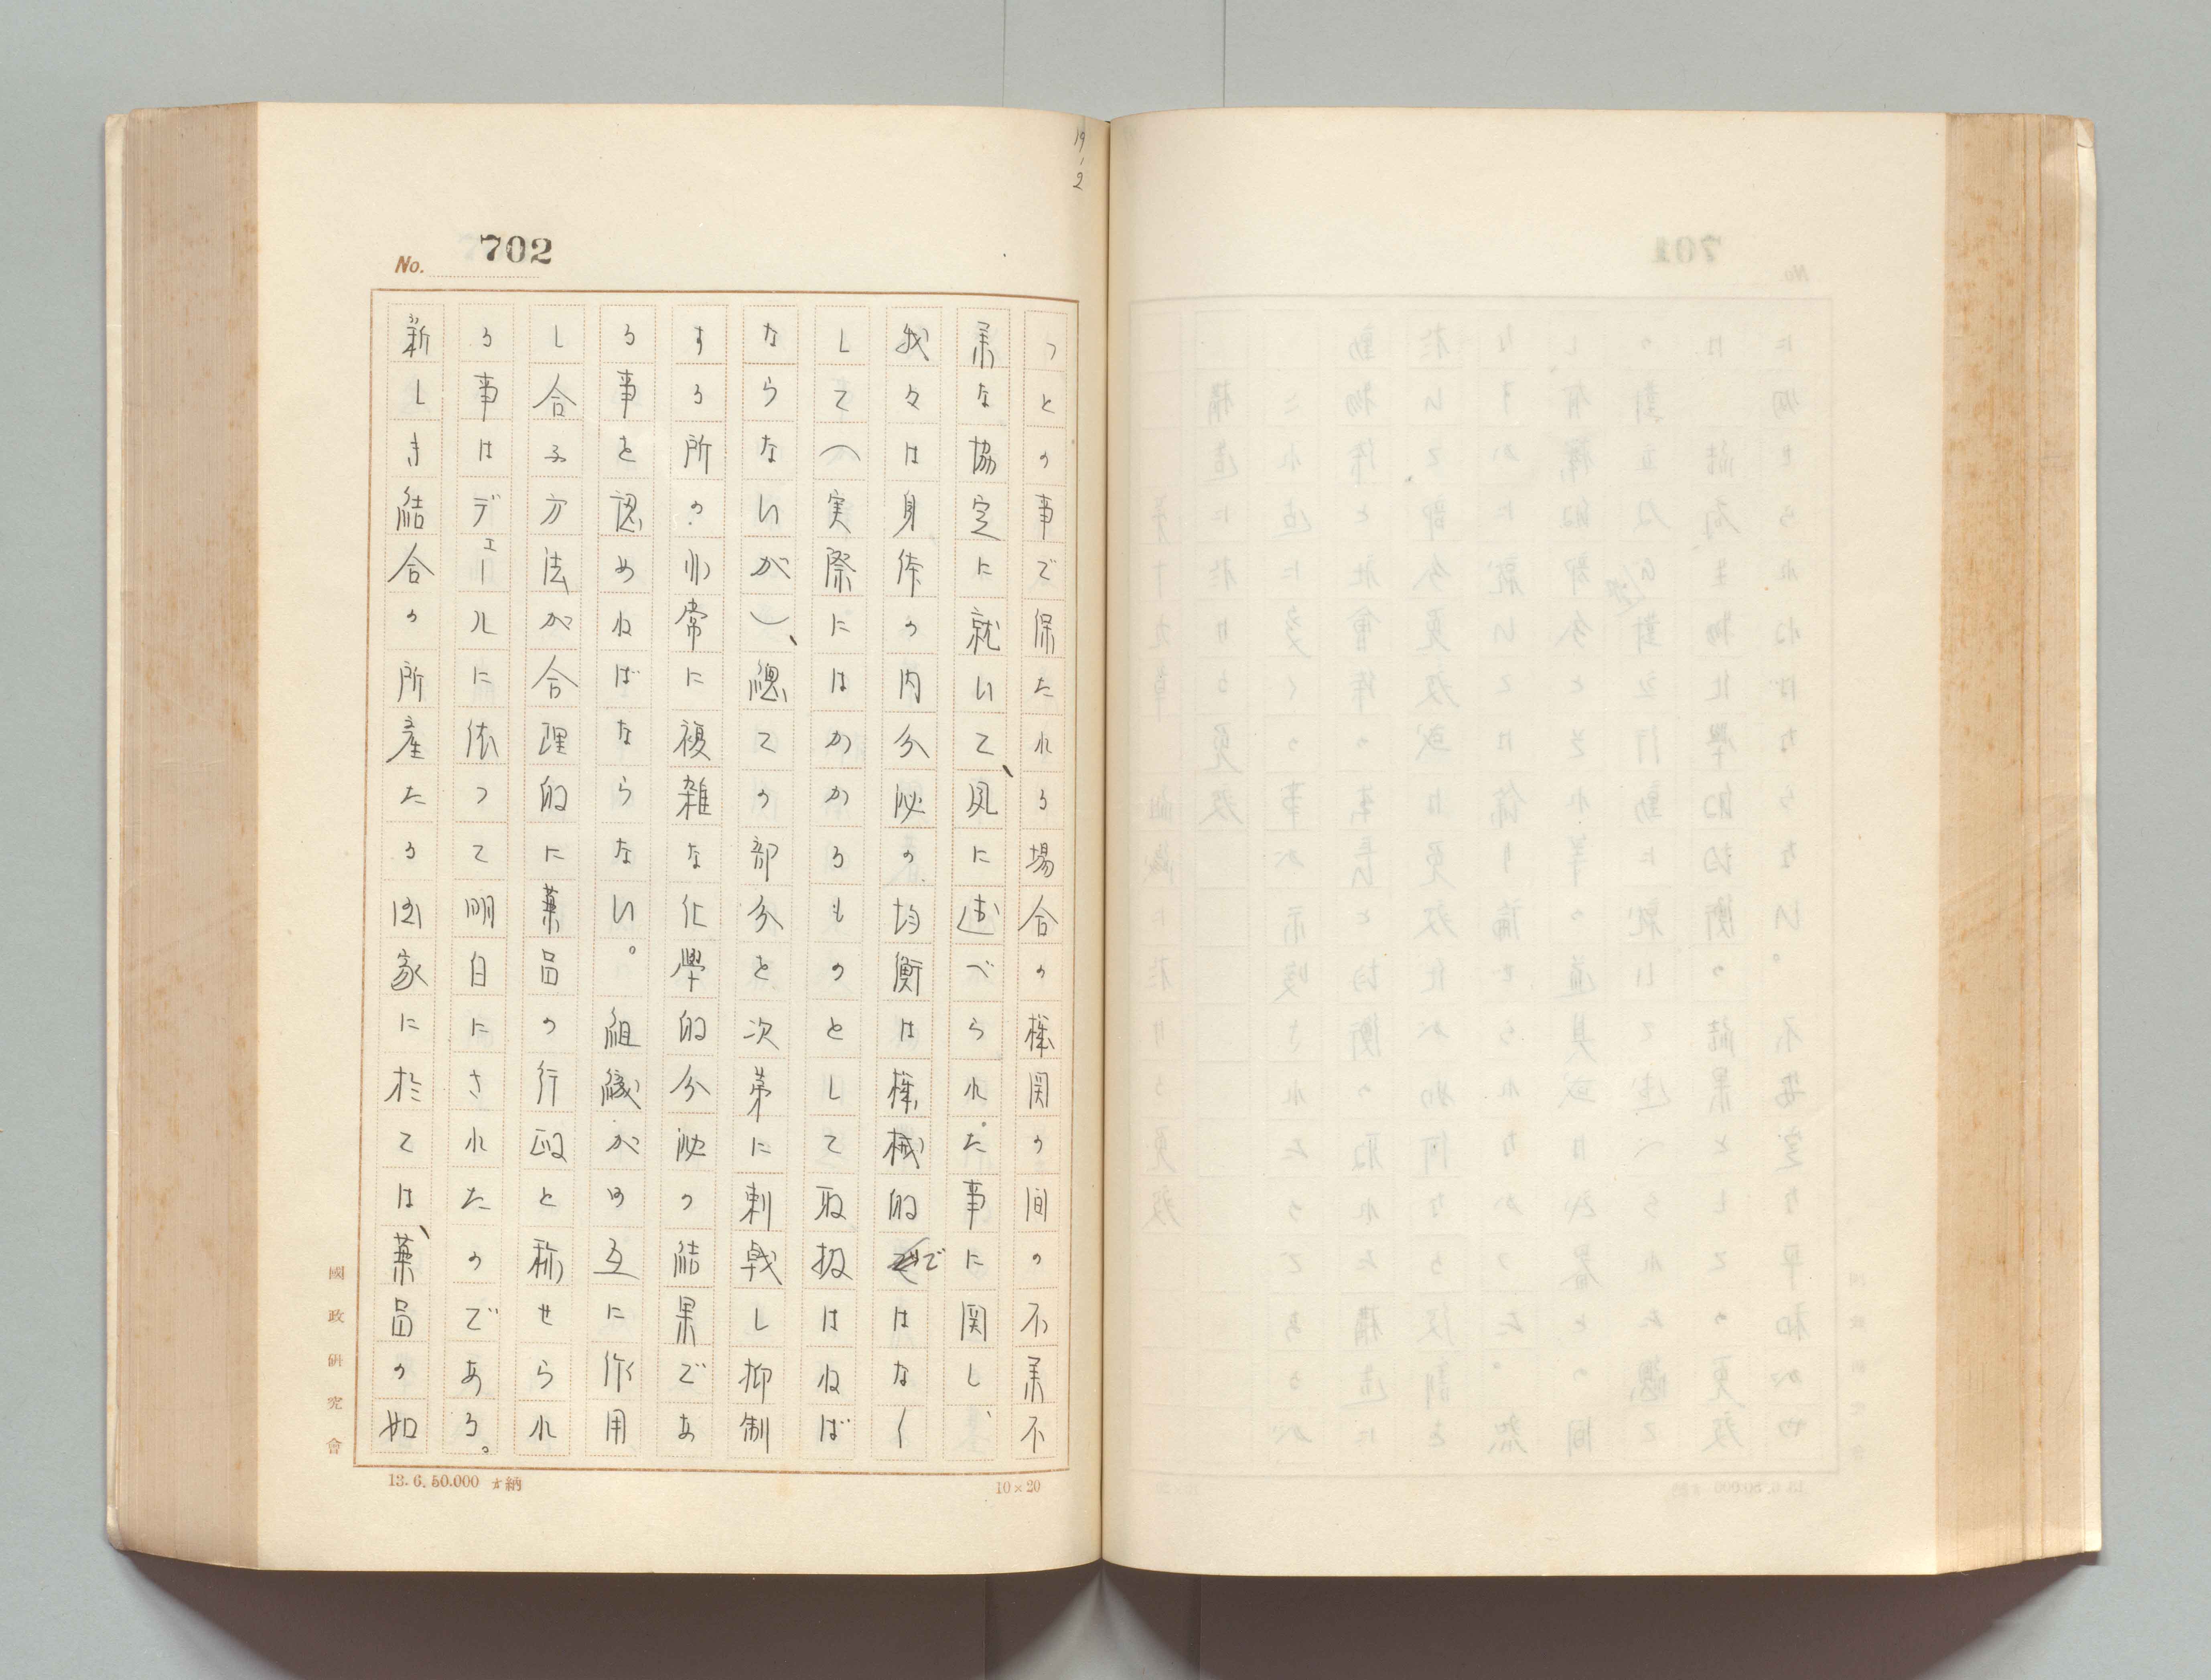 19,2
No. 702
つとの事で保たれる場合の機関の間の不承不
承な協定に就いて、夙に述べられた事に関し、
我々は身体の内分泌の均衡は機械的ではなく
して（実際にはかかるものとして取扱はねば
ならないが）、總ての部分を次第に刺戟し抑制
する所の非常に複雑な化學的分泌の結果であ
る事を認めねばならない。組織が相互に作用
し合ふ方法が合理的に薬品の行政と称せられ
る事はデェールに依つて明白にされたのである。
新しき結合の所産たる国家に於ては、薬品の如
國政研究會
13.6.50.000 納
10×20